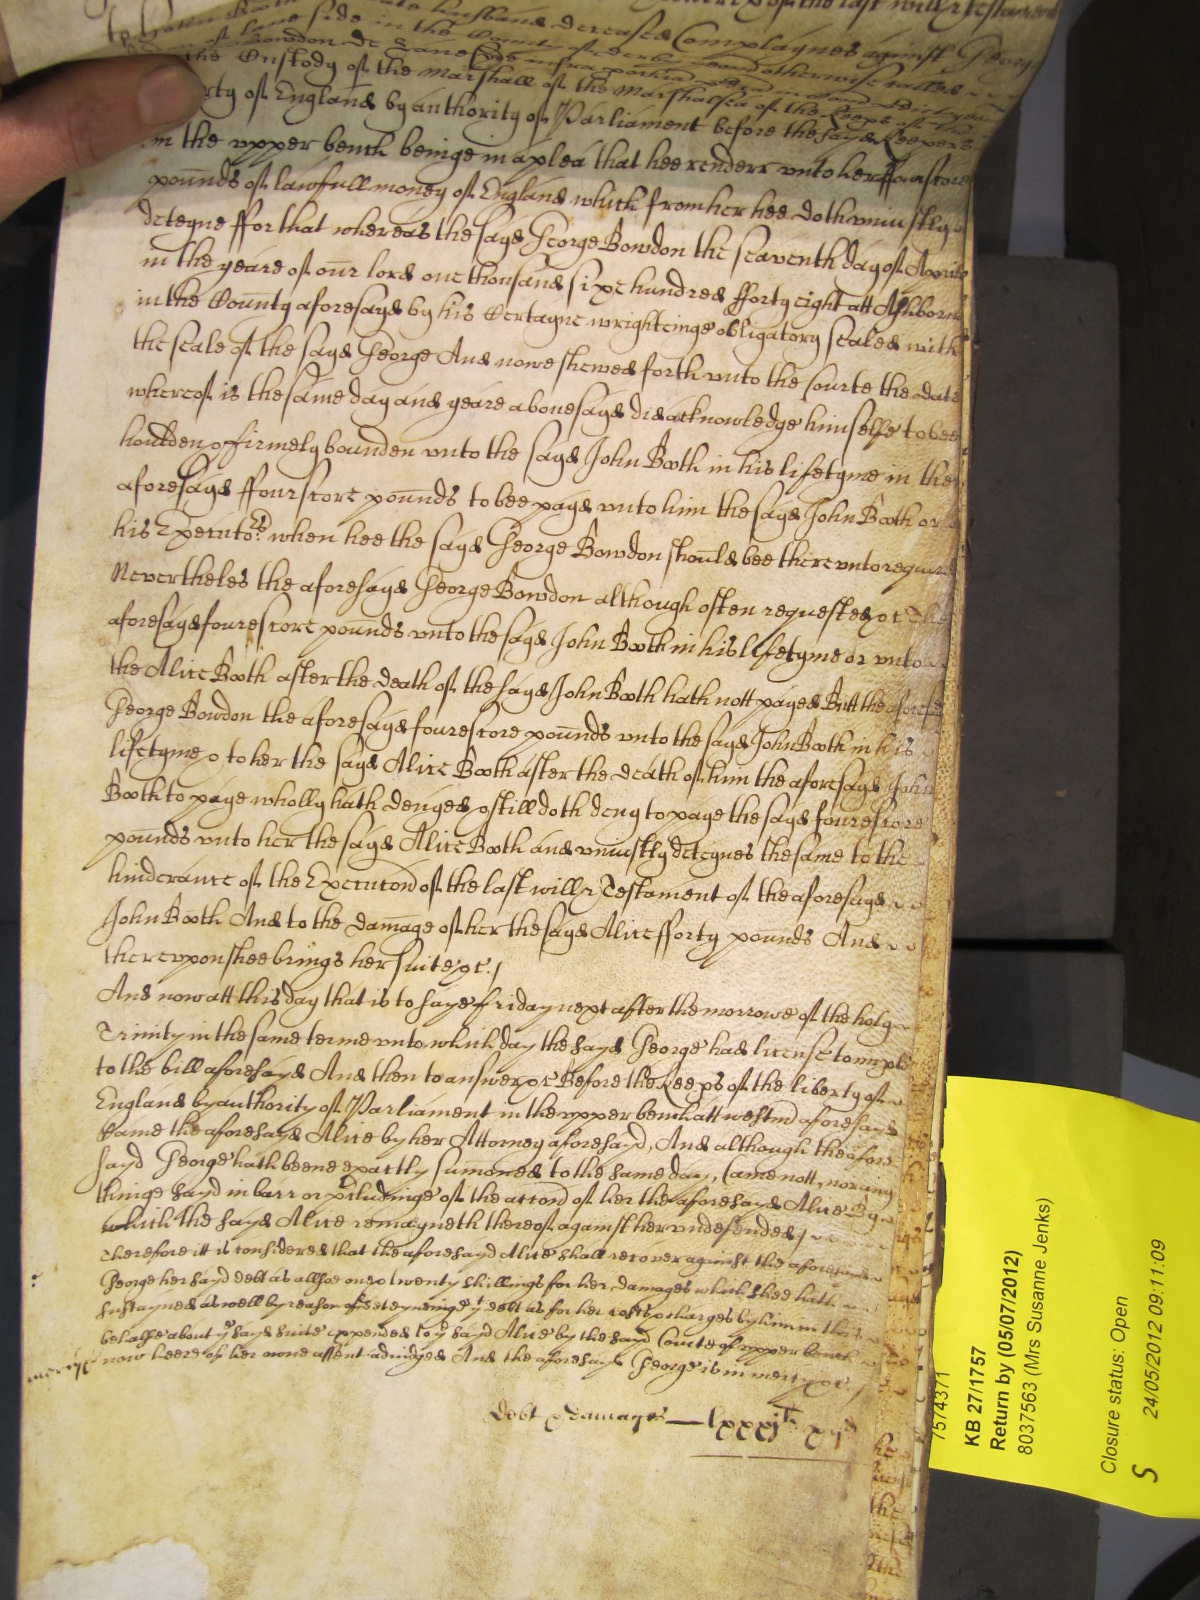 last will & testam
to John Booth late husband deceased Complaynes against George
Bowdon de Lane side in the County of derby and otherwise called
George Bowdon de Lane
the Custody of the Marshall of the Marshalsea of the Keeps of the
rty of England by authority of Parliament before the sayd Keepers
in the upper bench beinge in a plea that hee renderr unto her ffourscore
pounds of lawfull money of England which from her hee doth uniustly
deteyne ffor that whereas the sayd George Bowdon the seaventh day of Aprill
in the yeare of our lord one thousand sixe hundred fforty eight att Ashborne
in the County aforesayd by his Certayne wrighteinge obligatory sealed with
the seale of the sayd George And nowe shewed forth unto the Courte the date
whereof is the same day and yeare abovesayd did acknowledge himselfe to bee
houlden & firmely bounden unto the sayd John Booth in his lifetyme in the
aforesayd ffourscore pounds to bee payd unto him the sayd John Booth or
his Executors when hee the sayd George Bowdon should bee thereunto required
Nevertheles the aforesayd George Bowdon although often requested &c the
aforesayd fourescore pounds unto the sayd John Booth in his lifetyme or unto
the Alice Booth after the death of the sayd John Booth hath nott payed Butt the aforesd
George Bowdon the aforesayd fourescore pounds unto the sayd John Booth in his
lifetyme & to her the sayd Alice Booth after the death of him the aforesayd John
Booth to paye wholly hath denyed & still doth deny to paye the sayd fourescore
pounds unto her the sayd Alice Booth and uniustly deteynes the same to the
hinderance of the Execution of the last will & Testament of the aforesayd
John Booth And to the damage of her the sayd Alice fforty pounds And
thereupon shee brings her suite &c./
And now att this day that is to saye friday next after the morrowe of the holy
Trinity in the same terme unto which day the sayd George had license to imple
to the bill aforesayd And then to answer &c Before the Keeps of the liberty of
England by authority of Parliament in the upper bench att westmr aforesayd
Came the aforesayd Alice by her Attorney aforesayd, And although the afore
sayd George hath beene exactly summoned to the same day, Came nott, nor any
thinge sayd in barr or preludinge of the accon of her the aforesayd Alice By
which the sayd Alice remayneth thereof against her undefended /
Therefore itt is considered that the aforesayd Alice shall recover against the aforesaid
George her sayd debt as allsoe one & twenty shillings for her damages which shee hath
sustayned as well by reason of deteyneinge ye debt as for her costs & charges by him in this
behalfe about ye sayd suite expended to ye sayd Alice by the sayd Courte of upper bench
now heere of her owne assent adiudged And the aforesayd George is in mercy &c /
mercy
Debt & damages — lxxxjli xijd
7574371
KB 27/1757
Return by (05/07/2012)
8037563 (Mrs Susanne Jenks)
Closure status: Open
24/05/2012 09:11:09
S